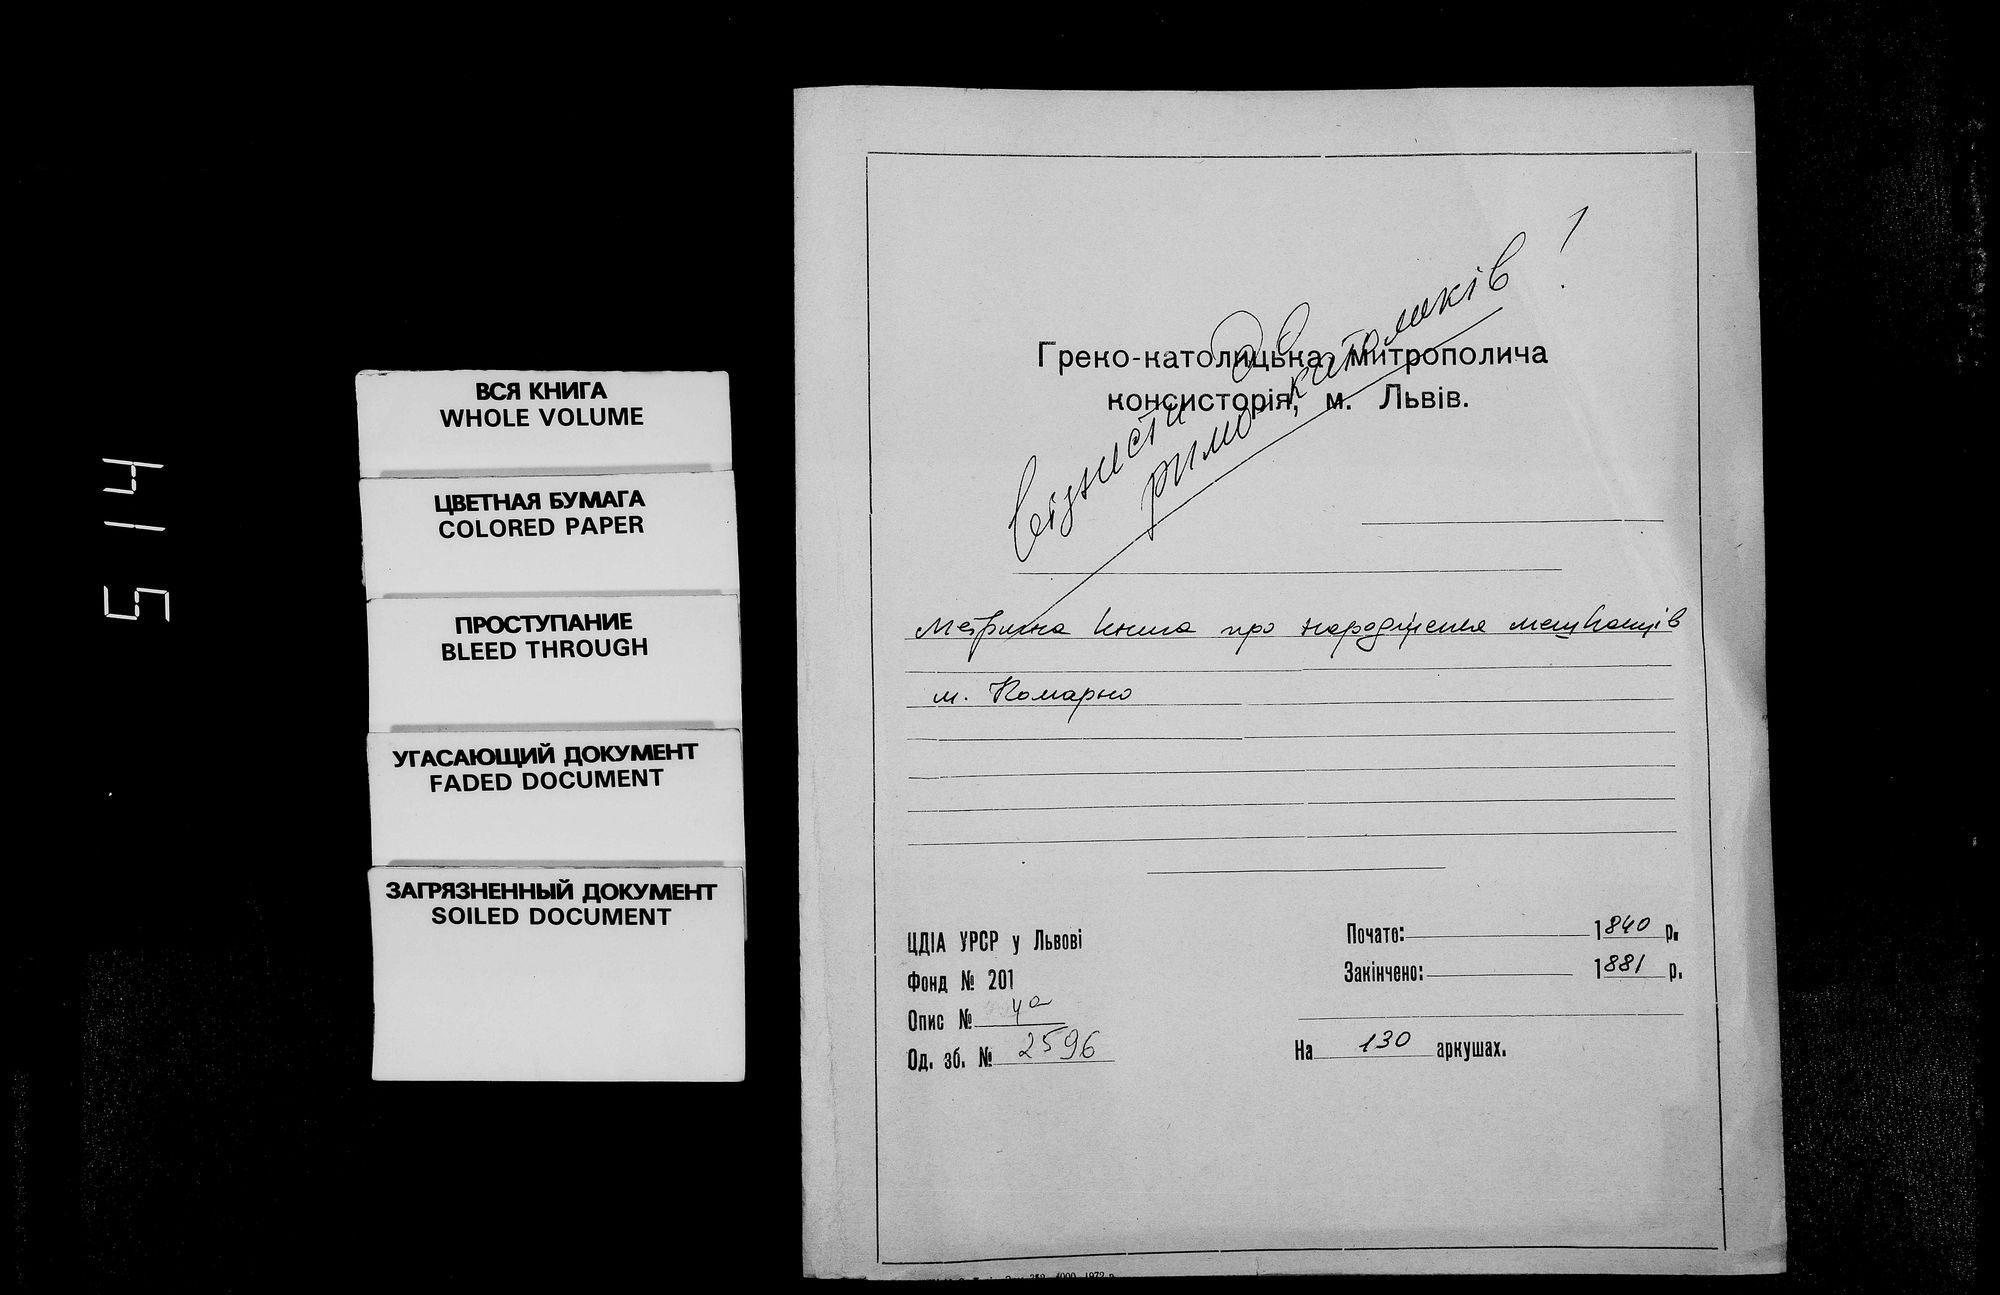 514
ВСЯ КНИГА
WHOLE VOLUME
ЦВЕТНАЯ БУМАГА
COLORED PAPER
ПРОСТУПАНИЕ
BLEED THROUGH
УГАСАЮЩИЙ ДОКУМЕНТ
FADED DOCUMENT
ЗАГРЯЗНЕННЫЙ ДОКУМЕНТ
SOILED DOCUMENT
віднести до
римо-католиків!
Греко-католицька митрополича
консисторія, м. Львів.
Метрична книга про народження мешканців
м. Комарно
ЦДІА УРСР у Львові
Фонд № 201
Опис № 4а
Од. зб. № 2596
Почато: 1840 р.
Закінчено: 1881 р.
На 130 аркушах.